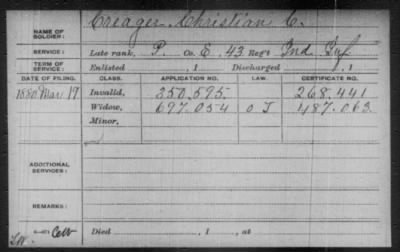 NAME OF SOLDIER: Creager Christian C.
SERVICE: Late rank, P. Co. E, 43 Reg't Ind. Inf
TERM OF SERVICE: Enlisted , 1 Discharged , 1
DATE OF FILING. CLASS. APPLICATION NO. LAW. CERTIFICATE NO.
1880 Mar 19 Invalid, 350.595. 268.441
Widow, 697.054 O J 487.063
Minor,
ADDITIONAL SERVICES:
REMARKS:
Died , 1 , at